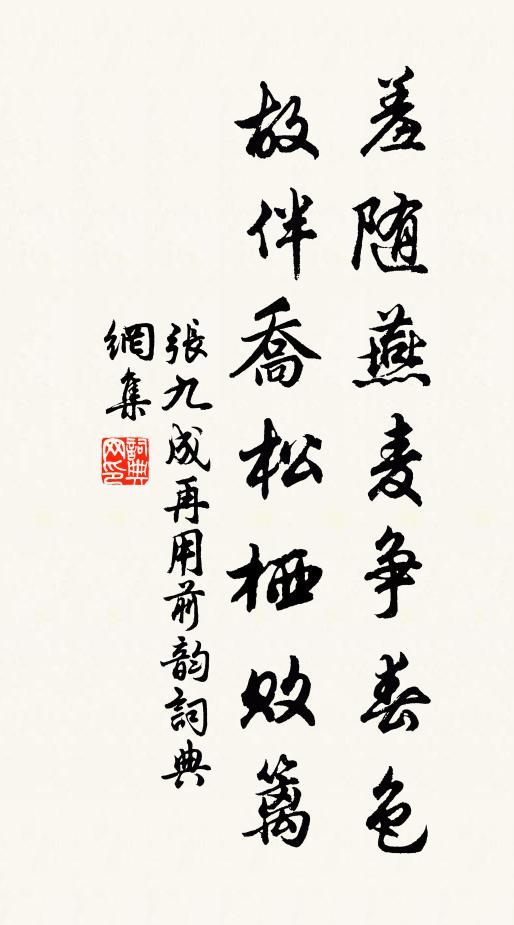 羞随燕麦争春色
故伴喬松栖败篱
張九成再用前韵詞典
網集
詞典網印